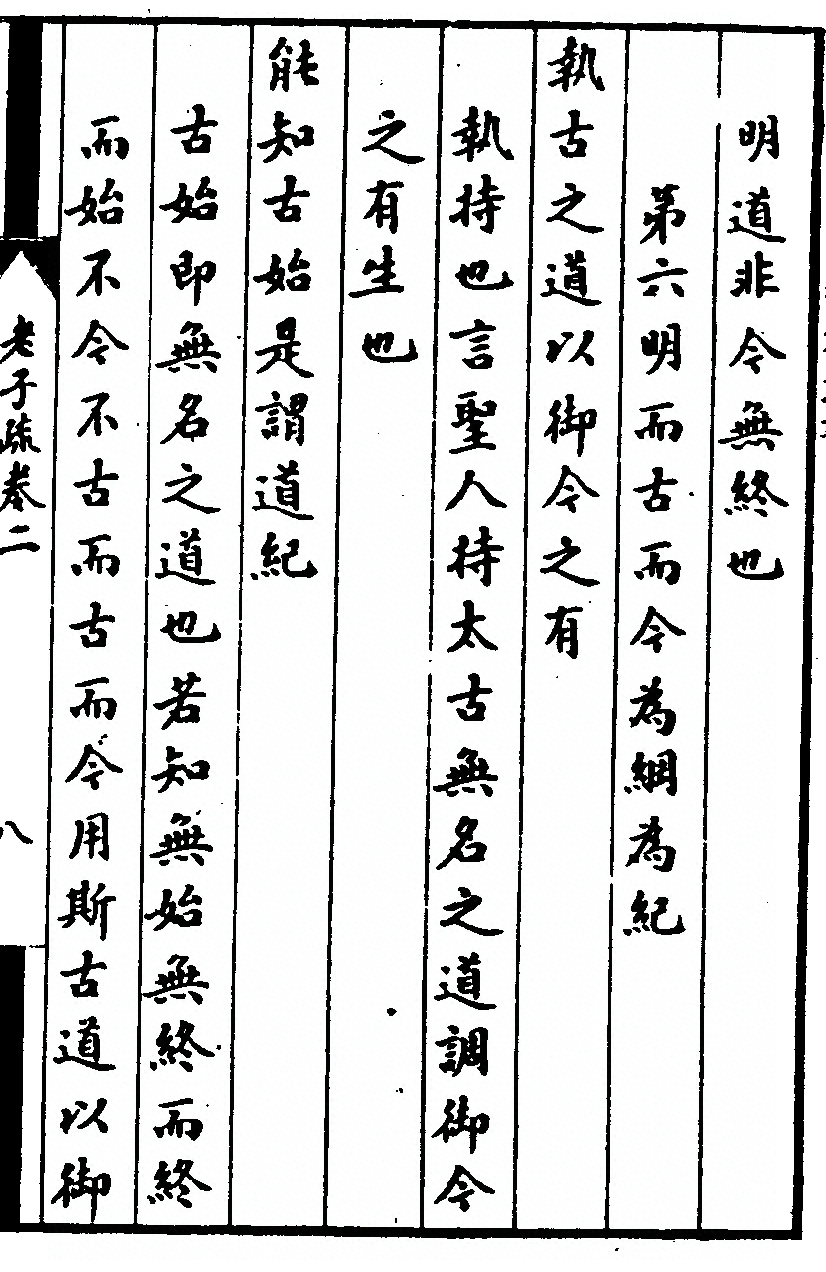 明道非今無終也
第六明而古而今為綱為紀
執古之道以御今之有
執持也言聖人持太古無名之道調御今
之有生也
能知古始是謂道紀
古始即無名之道也若知無始無終而終
而始不今不古而古而今用斯古道以御
老子疏卷二
八